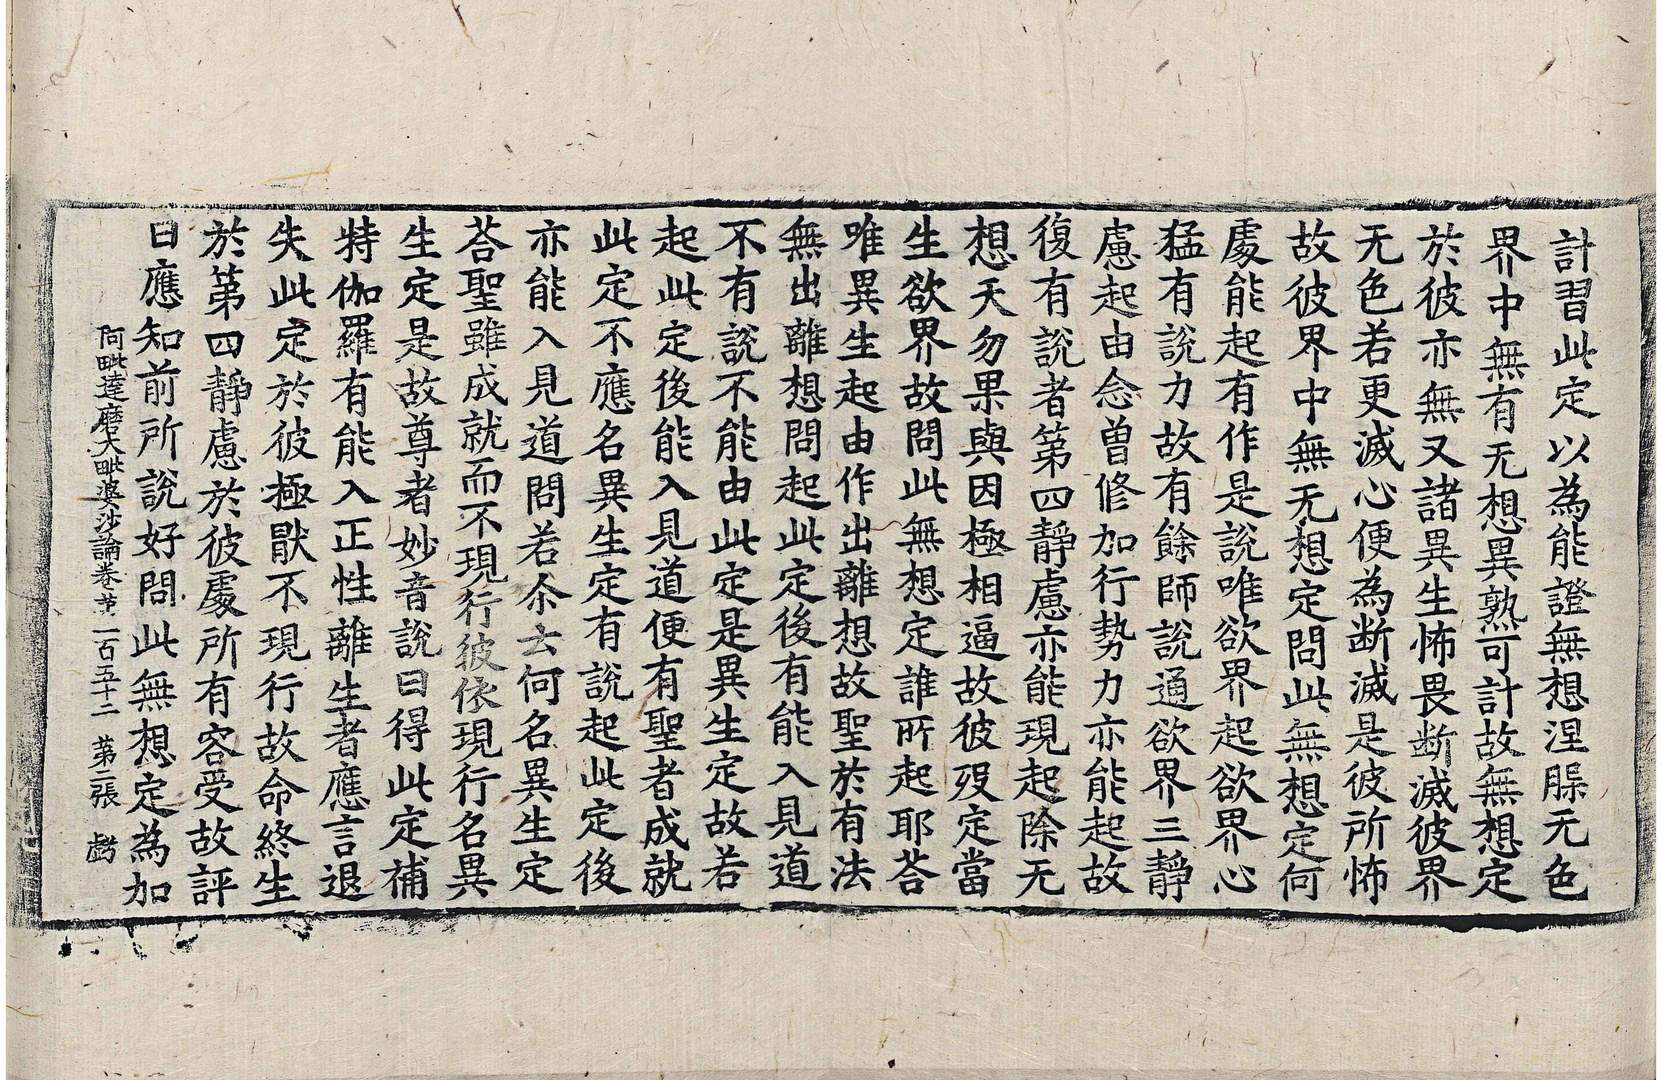 計習此定以為能證無想涅槃无色
界中無有无想異熟可計故無想定
於彼亦無又諸異生怖畏断滅彼界
无色若更滅心便為断滅是彼所怖
故彼界中無无想定問此無想定何
處能起有作是說唯欲界起欲界心
猛有說力故有餘師說通欲界三靜
慮起由念曾修加行勢力亦能起故
復有說者第四靜慮亦能現起除无
想天勿果與因極相逼故彼歿定當
生欲界故問此無想定誰所起耶荅
唯異生起由作出離想故聖於有法
無出離想問起此定後有能入見道
不有說不能由此定是異生定故若
起此定後能入見道便有聖者成就
此定不應名異生定有說起此定後
亦能入見道問若尒云何名異生定
荅聖雖成就而不現行彼依現行名異
生定是故尊者妙音說曰得此定補
特伽羅有能入正性離生者應言退
失此定於彼極猒不現行故命終生
於第四靜慮於彼處所有容受故評
曰應知前所說好問此無想定為加
阿毗達磨大毗婆沙論卷第一百五十二 第二張